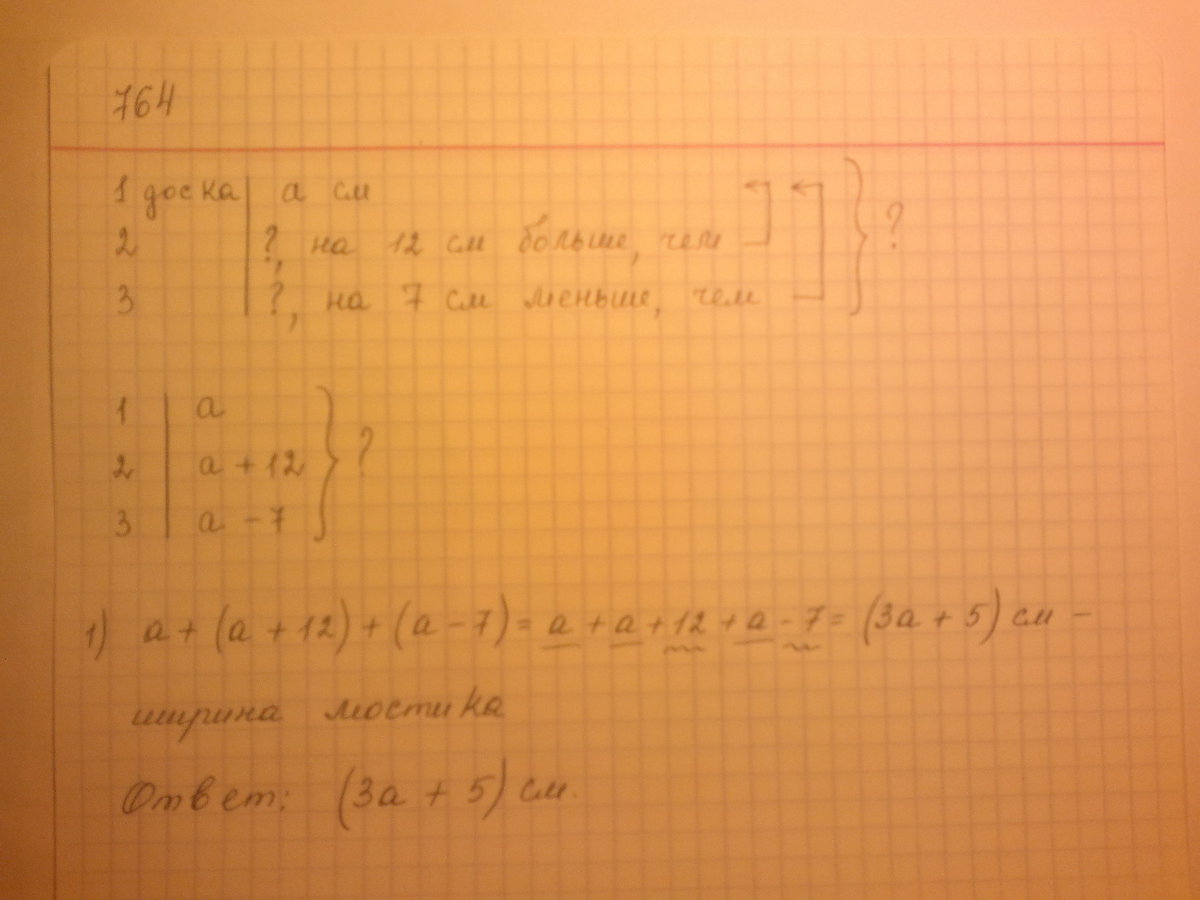 764
1 доска | а см
2 | ?, на 12 см больше, чем } ?
3 | ?, на 7 см меньше, чем
1 | а
2 | а + 12 } ?
3 | а - 7
1) а + (а + 12) + (а - 7) = а + а + 12 + а - 7 = (3а + 5) см -
ширина мостика
Ответ: (3а + 5) см.